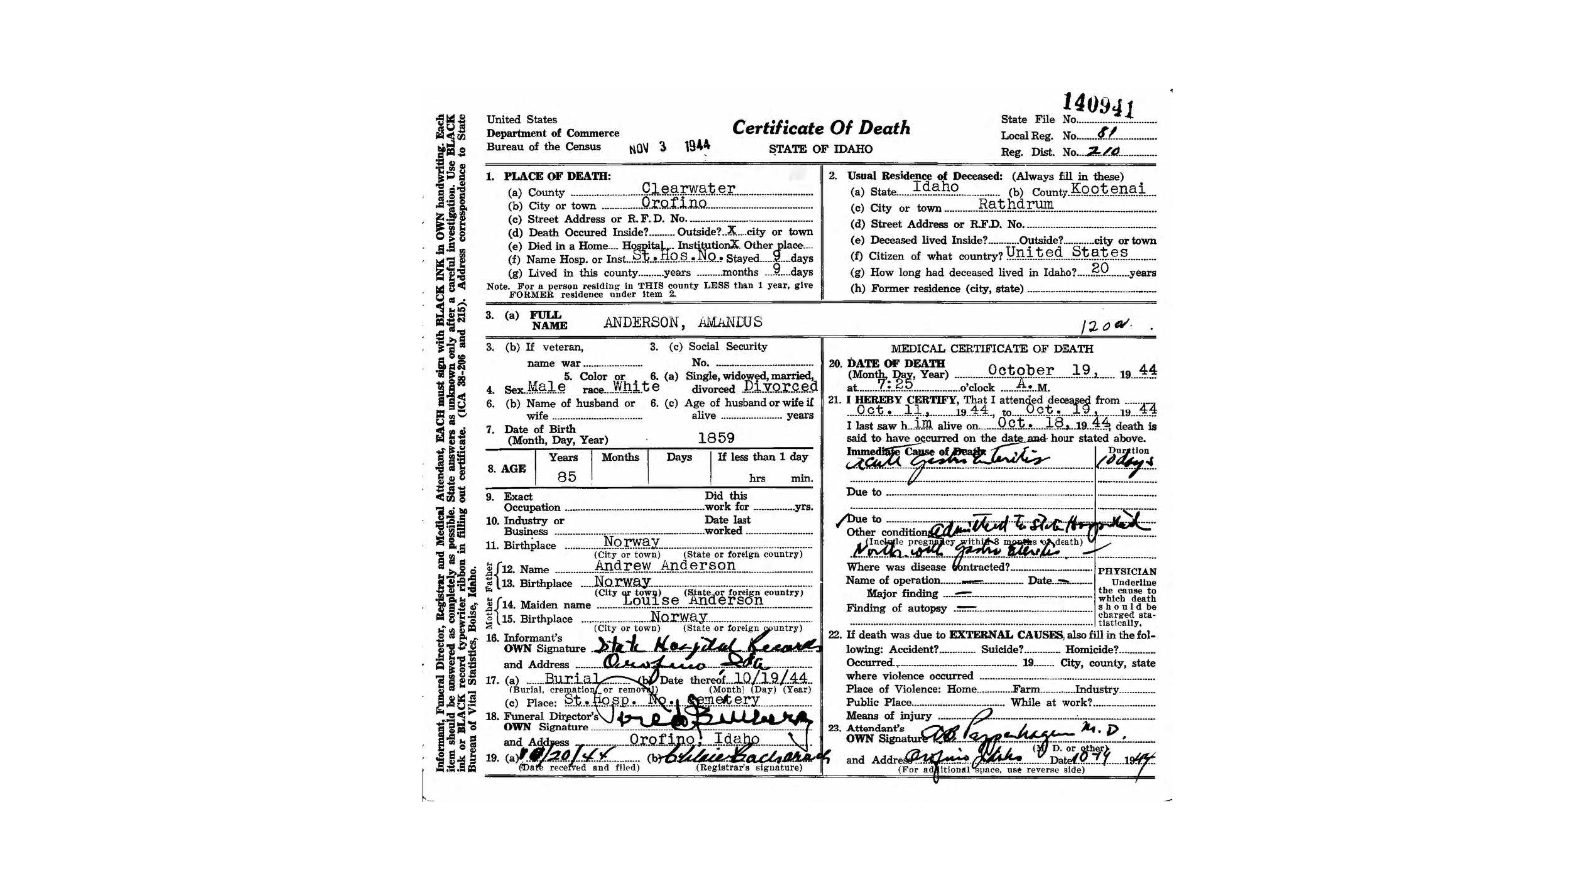 140941
United States
Department of Commerce
Bureau of the Census
NOV 3 1944
Certificate Of Death
STATE OF IDAHO
State File No.
Local Reg. No. 81
Reg. Dist. No. 210
Informant, Funeral Director, Registrar and Medical Attendant, EACH must sign with BLACK INK in OWN handwriting. Each
item should be answered as completely as possible. State answers as unknown only after a careful investigation. Use BLACK
ink or BLACK record typewriter ribbon in filling out certificate. (ICA 38-206 and 215). Address correspondence to State
Bureau of Vital Statistics, Boise, Idaho.
1. PLACE OF DEATH:
(a) County Clearwater
(b) City or town Orofino
(c) Street Address or R.F.D. No.
(d) Death Occured Inside? Outside? X city or town
(e) Died in a Home Hospital Institution X Other place
(f) Name Hosp. or Inst. St.Hos.No. Stayed 9 days
(g) Lived in this county years months 9 days
Note. For a person residing in THIS county LESS than 1 year, give
FORMER residence under item 2.
2. Usual Residence of Deceased: (Always fill in these)
(a) State Idaho (b) County Kootenai
(c) City or town Rathdrum
(d) Street Address or R.F.D. No.
(e) Deceased lived Inside? Outside? city or town
(f) Citizen of what country? United States
(g) How long had deceased lived in Idaho? 20 years
(h) Former residence (city, state)
3. (a) FULL
NAME ANDERSON, AMANDUS
120a
3. (b) If veteran,
name war
3. (c) Social Security
No.
4. Sex Male
5. Color or
race White
6. (a) Single, widowed, married,
divorced Divorced
6. (b) Name of husband or
wife
6. (c) Age of husband or wife if
alive years
7. Date of Birth
(Month, Day, Year) 1859
8. AGE
Years Months Days If less than 1 day
85 hrs min.
9. Exact
Occupation
Did this
work for yrs.
10. Industry or
Business
Date last
worked
11. Birthplace Norway
(City or town) (State or foreign country)
Father
12. Name Andrew Anderson
13. Birthplace Norway
(City or town) (State or foreign country)
Mother
14. Maiden name Louise Anderson
15. Birthplace Norway
(City or town) (State or foreign country)
16. Informant's
OWN Signature State Hospital Records
and Address Orofino Ida
17. (a) Burial (b) Date thereof 10/19/44
(Burial, cremation or removal) (Month) (Day) (Year)
(c) Place: St.Hosp. No., Cemetery
18. Funeral Director's
OWN Signature
and Address Orofino, Idaho
19. (a) 10/20/44 (b)
(Date received and filed) (Registrar's signature)
MEDICAL CERTIFICATE OF DEATH
20. DATE OF DEATH
(Month, Day, Year) October 19, 1944
at 7:25 o'clock A. M.
21. I HEREBY CERTIFY, That I attended deceased from
Oct. 11, 1944, to Oct. 19, 1944
I last saw h im alive on Oct. 18, 1944, death is
said to have occurred on the date and hour stated above.
Immediate Cause of Death Duration
Acute Gastro Enteritis 10 days
Due to
Due to
Other conditions admitted to State Hospital
(Include pregnancy within 3 months of death)
North with gastro Enteritis
Where was disease contracted?
Name of operation — Date —
Major finding —
Finding of autopsy —
PHYSICIAN
Underline
the cause to
which death
should be
charged sta-
tistically.
22. If death was due to EXTERNAL CAUSES, also fill in the fol-
lowing: Accident? Suicide? Homicide?
Occurred 19 City, county, state
where violence occurred
Place of Violence: Home Farm Industry
Public Place While at work?
Means of injury
23. Attendant's
OWN Signature Pappenhagen M.D.
(M. D. or other)
and Address Orofino Idaho Date 1944
(For additional space, use reverse side)